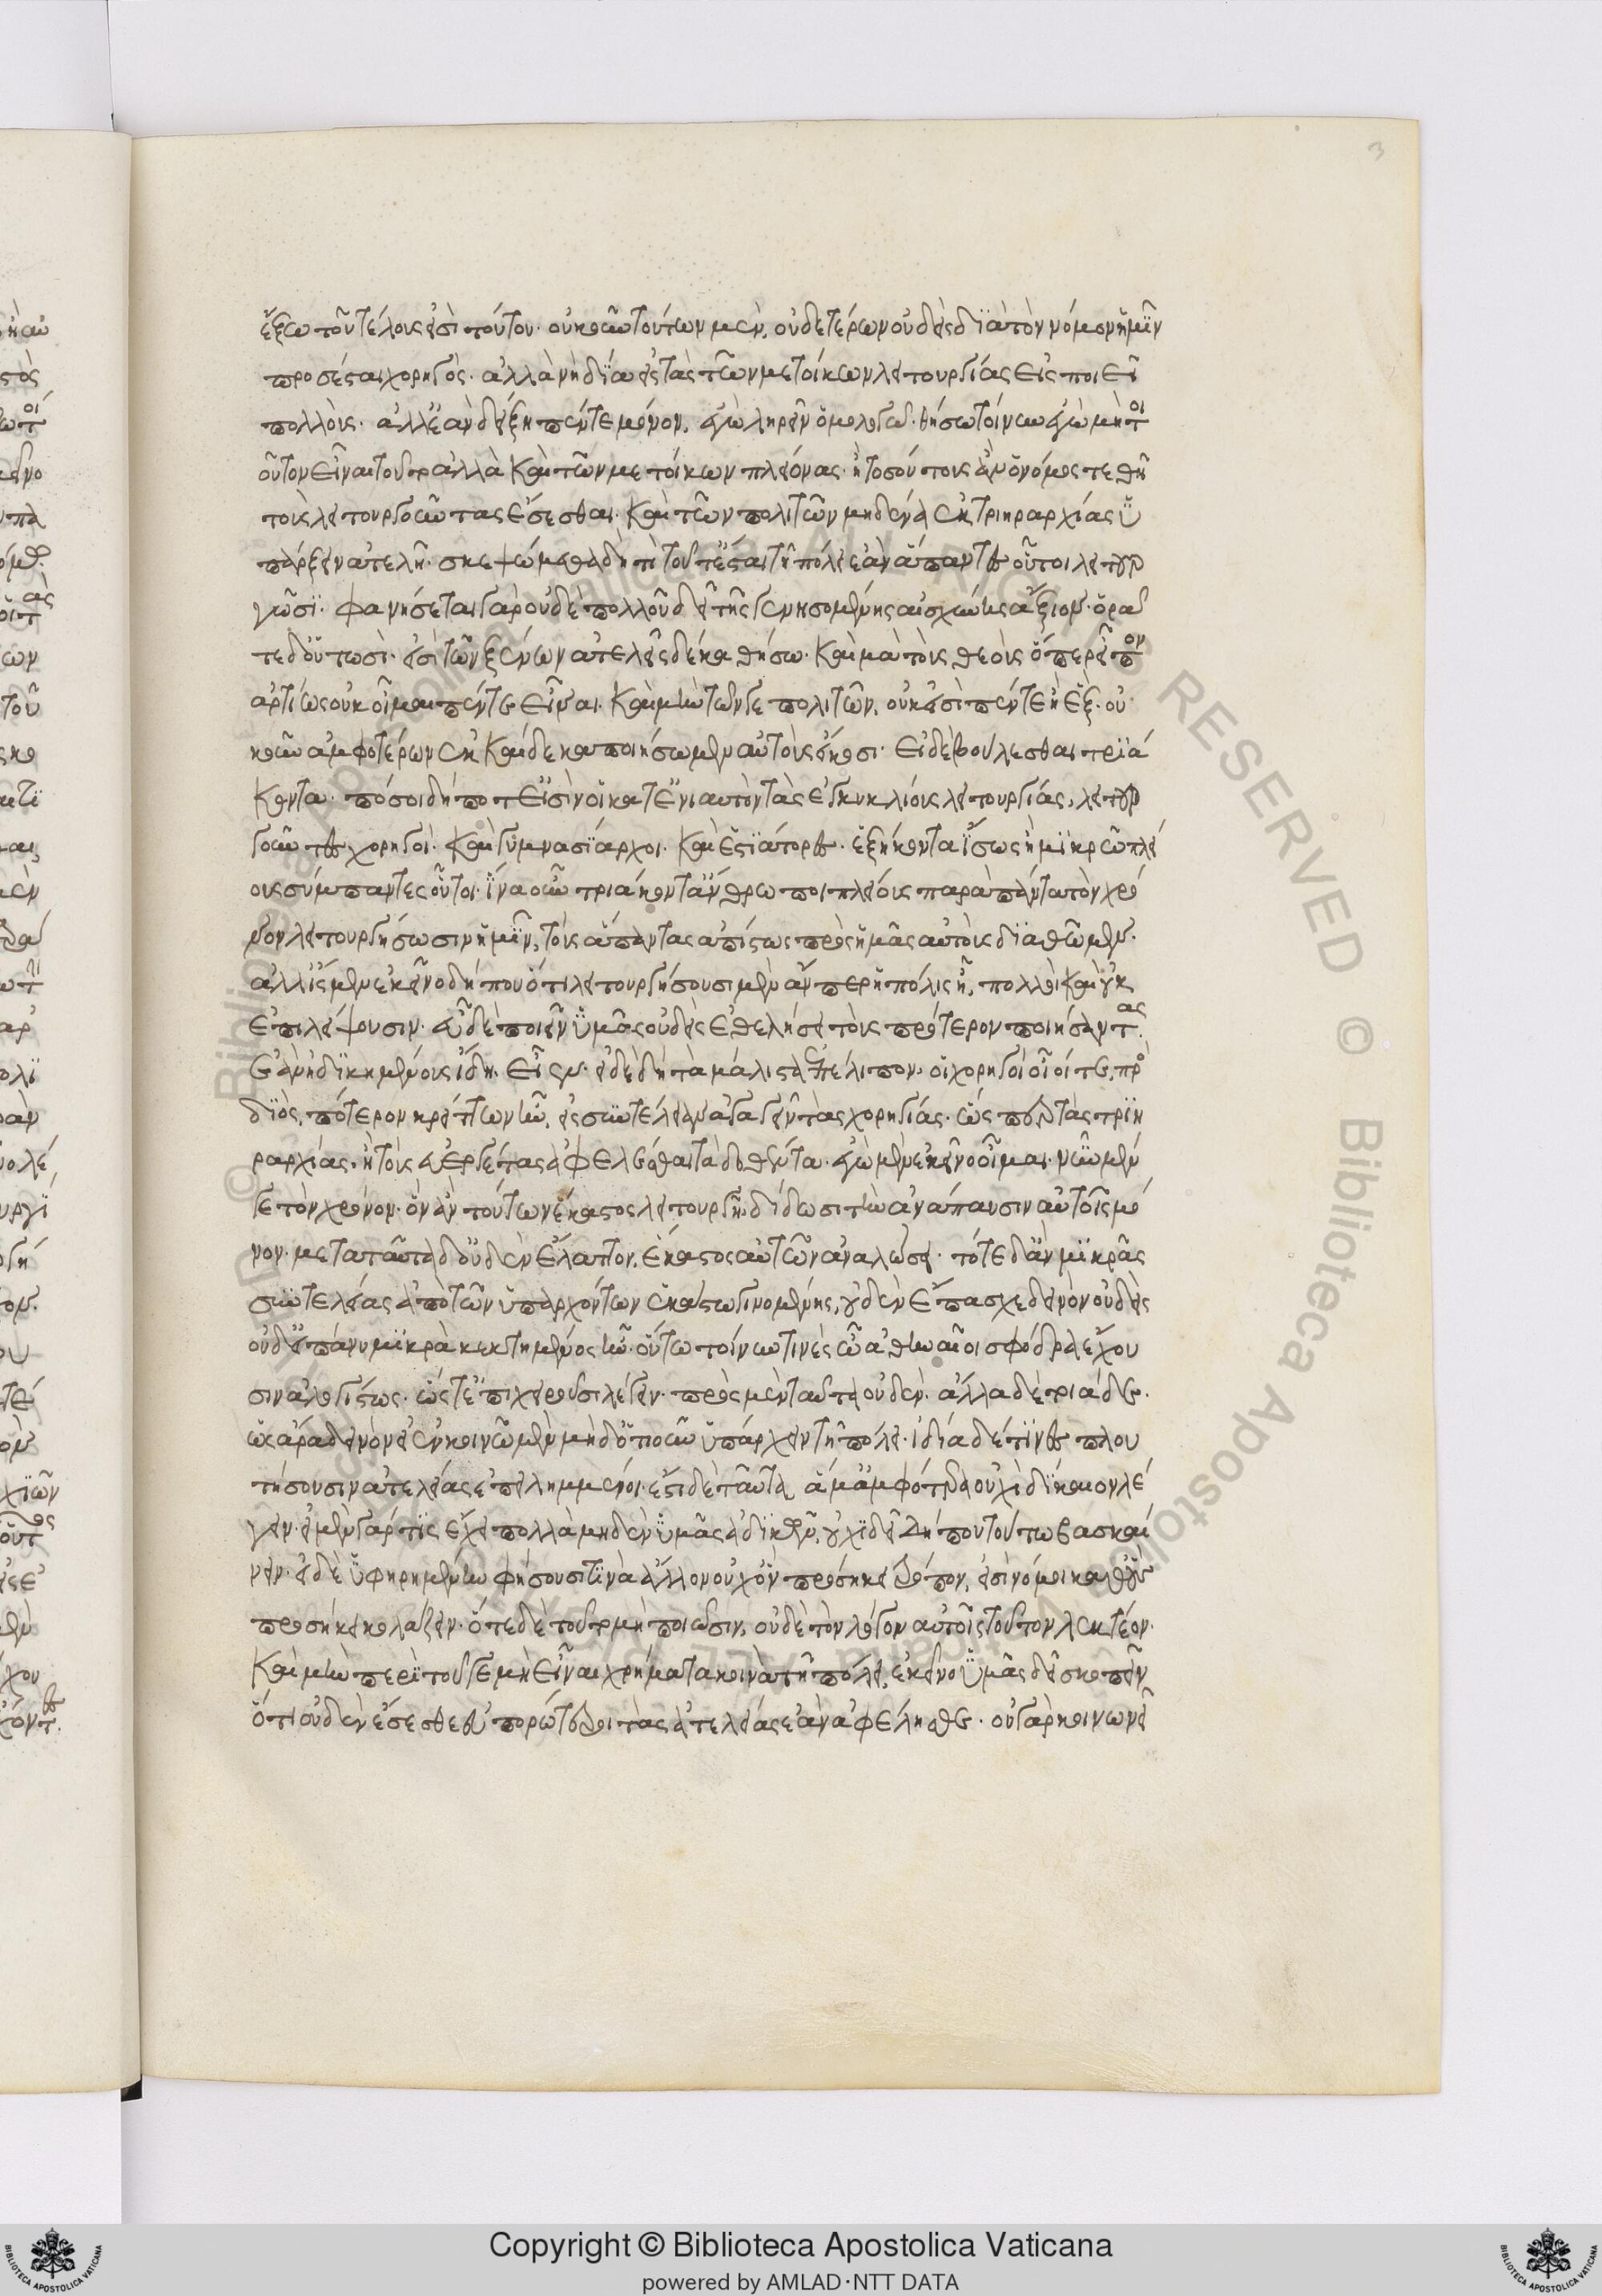 ἔξω τοῦ τέλους εἰσὶ τούτου· οὐκοῦν τούτων μὲν, οὐδετέρων οὐδεὶς διὰ τὸν νόμον ἡμῖν
προσέσται χορηγός· ἀλλὰ νὴ δία εἰς τὰς τῶν μετοίκων λειτουργίας εἰσποιεῖ
πολλούς· ἀλλ' ἐὰν δείξῃ πέντε μόνον, ἐγὼ ληρεῖν ὁμολογῶ· θήσω τοίνυν ἐγὼ μὴ τοι
οῦτον εἶναι τοῦτο ἀλλὰ καὶ τῶν μετοίκων πλείονας· ἢ τοσούτους ἂν ὁ νόμος τεθῆ
τοὺς λειτουργοῦντας ἔσεσθαι· καὶ τῶν πολιτῶν μηδένα ἐκ τριηραρχίας ὑ
πάρξειν ἀτελῆ· σκεψώμεθα δὴ τί τοῦτ' ἔσται τῇ πόλει ἐὰν ἅπαντες οὗτοι λειτουρ
γῶσι· φανήσεται γὰρ οὐδὲ πολλοῦ δεῖ τῆς γενησομένης αἰσχύνης ἄξιον· ὁρᾶ
τε δ' οὑτωσί· εἰσὶ τῶν ξένων ἀτελεῖς δέκα θήσω· καὶ μὰ τοὺς θεοὺς ὅπερ εἶπον
ἀρτίως οὐκ οἶμαι πέντε εἶναι· καὶ μὴν τῶν γε πολιτῶν, οὐκ εἰσὶ πέντε ἢ ἕξ· οὐ
κοῦν ἀμφοτέρων ἑκκαίδεκα ποιήσωμεν αὐτοὺς εἴκοσι· εἰ δὲ βούλεσθαι τριά
κοντα· πόσοι δήποτ' εἰσὶν οἱ κατ' ἐνιαυτὸν τὰς ἐγκυκλίους λειτουργίας, λειτουρ
γοῦντες χορηγοί· καὶ γυμνασίαρχοι· καὶ ἑστιάτορες· ἑξήκοντα ἴσως ἢ μικρῶ πλεί
ους σύμπαντες οὗτοι· ἵνα οὖν τριάκοντα ἄνθρωποι πλείους παρὰ πάντα τὸν χρό
νον λειτουργήσωσιν ἡμῖν, τοὺς ἅπαντας ἀπίστως πρὸς ἡμᾶς αὐτοὺς διαθῶμεν·
ἀλλ' ἴσμεν ἐκεῖνο δήπου ὅτι λειτουργήσουσι μὲν ἄνπερ ἡ πόλις ἦ, πολλοὶ καὶ οὐκ
ἐπιλείψουσιν· εὖ δὲ ποιεῖν ὑμᾶς οὐδεὶς ἐθελήσει τοὺς πρότερον ποιήσαντας
ἐὰν ἠδικημένους ἴδῃ· εἶεν· εἰ δὲ δὴ τὰ μάλιστα ἐπέλιπον, οἱ χορηγοὶ οἷοί τε, πρὸ
διὸς, πότερον κρεῖττον ἦν, εἰς συντέλειαν ἀγαγεῖν τὰς χορηγίας· ὥσπερ τὰς τριη
ραρχίας, ἢ τοὺς εὐεργέτας ἀφελέσθαι τὰ δοθέντα· ἐγὼ μὲν ἐκεῖνο οἶμαι· νῦν μέν
γε τὸν χρόνον· ὃν ἂν τούτων ἕκαστος λειτουργῇ δίδωσι τὴν ἀνάπαυσιν αὐτοῖς μό
νον· μετὰ ταῦτα δ' οὐδὲν ἔλαττον, ἕκαστος αὐτῶν ἀναλώσει· τότε δ' ἂν μικρᾶς
συντελείας ἀπὸ τῶν ὑπαρχόντων ἑκάστω γινομένης, οὐδὲν ἔπασχε δεινὸν οὐδεὶς
οὐδ' εἰ πάνυ μικρὰ κεκτημένος ἦν· οὕτω τοίνυν τινὲς ὦ ἀθηναῖοι σφόδρα ἔχου
σιν ἀλογίστως· ὥστ' ἐπιχειροῦσι λέγειν· πρὸς μὲν ταῦτα οὐδέν· ἀλλα δὲ τριάδε·
ὡς ἄρα δεινὸν εἰ ἐν κοινῶ μὲν μηδ' ὁτιοῦν ὑπάρχειν τῇ πόλει· ἰδία δέ τινες πλου
τήσουσιν ἀτελείας ἐπειλημμένοι· ἔστι δὲ ταῦτα ἅμ' ἀμφότερα οὐχὶ δίκαιον λέ
γειν· εἰ μὲν γάρ τις ἔχει πολλὰ μηδὲν ὑμᾶς ἀδικῶν, οὐχὶ δεῖ δήπου τούτω βασκαί
νειν· εἰ δὲ ὑφηρημένον φήσουσι τινὰ ἄλλον οὐχ ὃν προσήκει τρόπον, εἰσὶ νόμοι καθ' οὓς
προσήκει κολάζειν· ὅτε δὲ τοῦτο μὴ ποιῶσιν, οὐδὲ τὸν λόγον αὐτοῖς τοῦτον λεκτέον·
καὶ μὴν περὶ τοῦ γε μὴ εἶναι χρήματα κοινὰ τῇ πόλει, ἐκεῖνο ὑμᾶς δεῖ σκοπεῖν
ὅτι οὐδὲν ἔσεσθε εὐπορώτεροι τὰς ἀτελείας ἐὰν ἀφέλησθε· οὐ γὰρ κοινωνεῖ